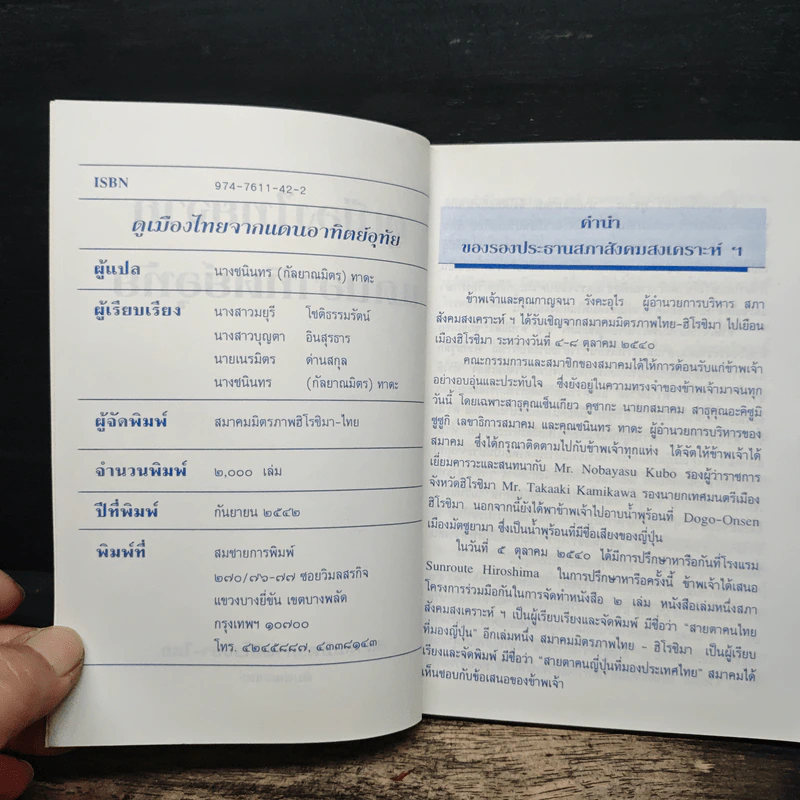 ISBN 974-7611-42-2
ดูเมืองไทยจากแดนอาทิตย์อุทัย
ผู้แปล นางชนินทร (กัลยาณมิตร) ทาดะ
ผู้เรียบเรียง นางสาวมยุรี โชติธรรมรัตน์
นางสาวบุญตา อินสุรธาร
นายเนรมิตร ด่านสกุล
นางชนินทร (กัลยาณมิตร) ทาดะ
ผู้จัดพิมพ์ สมาคมมิตรภาพฮิโรชิมา-ไทย
จำนวนพิมพ์ ๒,๐๐๐ เล่ม
ปีที่พิมพ์ กันยายน ๒๕๔๒
พิมพ์ที่ สมชายการพิมพ์
๒๗๐/๗๖-๗๗ ซอยวิมลสรกิจ
แขวงบางยี่ขัน เขตบางพลัด
กรุงเทพฯ ๑๐๗๐๐
โทร. ๔๒๔๕๘๘๗, ๔๓๓๘๑๔๓
คำนำ
ของรองประธานสภาสังคมสงเคราะห์ ฯ
ข้าพเจ้าและคุณกาญจนา รังคะอุไร ผู้อำนวยการบริหาร สภา
สังคมสงเคราะห์ ฯ ได้รับเชิญจากสมาคมมิตรภาพไทย-ฮิโรชิมา ไปเยือน
เมืองฮิโรชิมา ระหว่างวันที่ ๔-๘ ตุลาคม ๒๕๔๐
คณะกรรมการและสมาชิกของสมาคมได้ให้การต้อนรับแก่ข้าพเจ้า
อย่างอบอุ่นและประทับใจ ซึ่งยังอยู่ในความทรงจำของข้าพเจ้ามาจนทุก
วันนี้ โดยเฉพาะสาธุคุณเซ็นเกียว คูซากะ นายกสมาคม สาธุคุณอะคิซูมิ
ซูซูกิ เลขาธิการสมาคม และคุณชนินทร ทาดะ ผู้อำนวยการบริหารของ
สมาคม ซึ่งได้กรุณาติดตามไปกับข้าพเจ้าทุกแห่ง ได้จัดให้ข้าพเจ้าได้
เยี่ยมคารวะและสนทนากับ Mr. Nobayasu Kubo รองผู้ว่าราชการ
จังหวัดฮิโรชิมา Mr. Takaaki Kamikawa รองนายกเทศมนตรีเมือง
ฮิโรชิมา นอกจากนี้ยังได้พาข้าพเจ้าไปอาบน้ำพุร้อนที่ Dogo-Onsen
เมืองมัตซูยามา ซึ่งเป็นน้ำพุร้อนที่มีชื่อเสียงของญี่ปุ่น
ในวันที่ ๕ ตุลาคม ๒๕๔๐ ได้มีการปรึกษาหารือกันที่โรงแรม
Sunroute Hiroshima ในการปรึกษาหารือครั้งนี้ ข้าพเจ้าได้เสนอ
โครงการร่วมมือกันในการจัดทำหนังสือ ๒ เล่ม หนังสือเล่มหนึ่งสภา
สังคมสงเคราะห์ ฯ เป็นผู้เรียบเรียงและจัดพิมพ์ มีชื่อว่า “สายตาคนไทย
ที่มองญี่ปุ่น” อีกเล่มหนึ่ง สมาคมมิตรภาพไทย - ฮิโรชิมา เป็นผู้เรียบ
เรียงและจัดพิมพ์ มีชื่อว่า “สายตาคนญี่ปุ่นที่มองประเทศไทย” สมาคมได้
เห็นชอบกับข้อเสนอของข้าพเจ้า